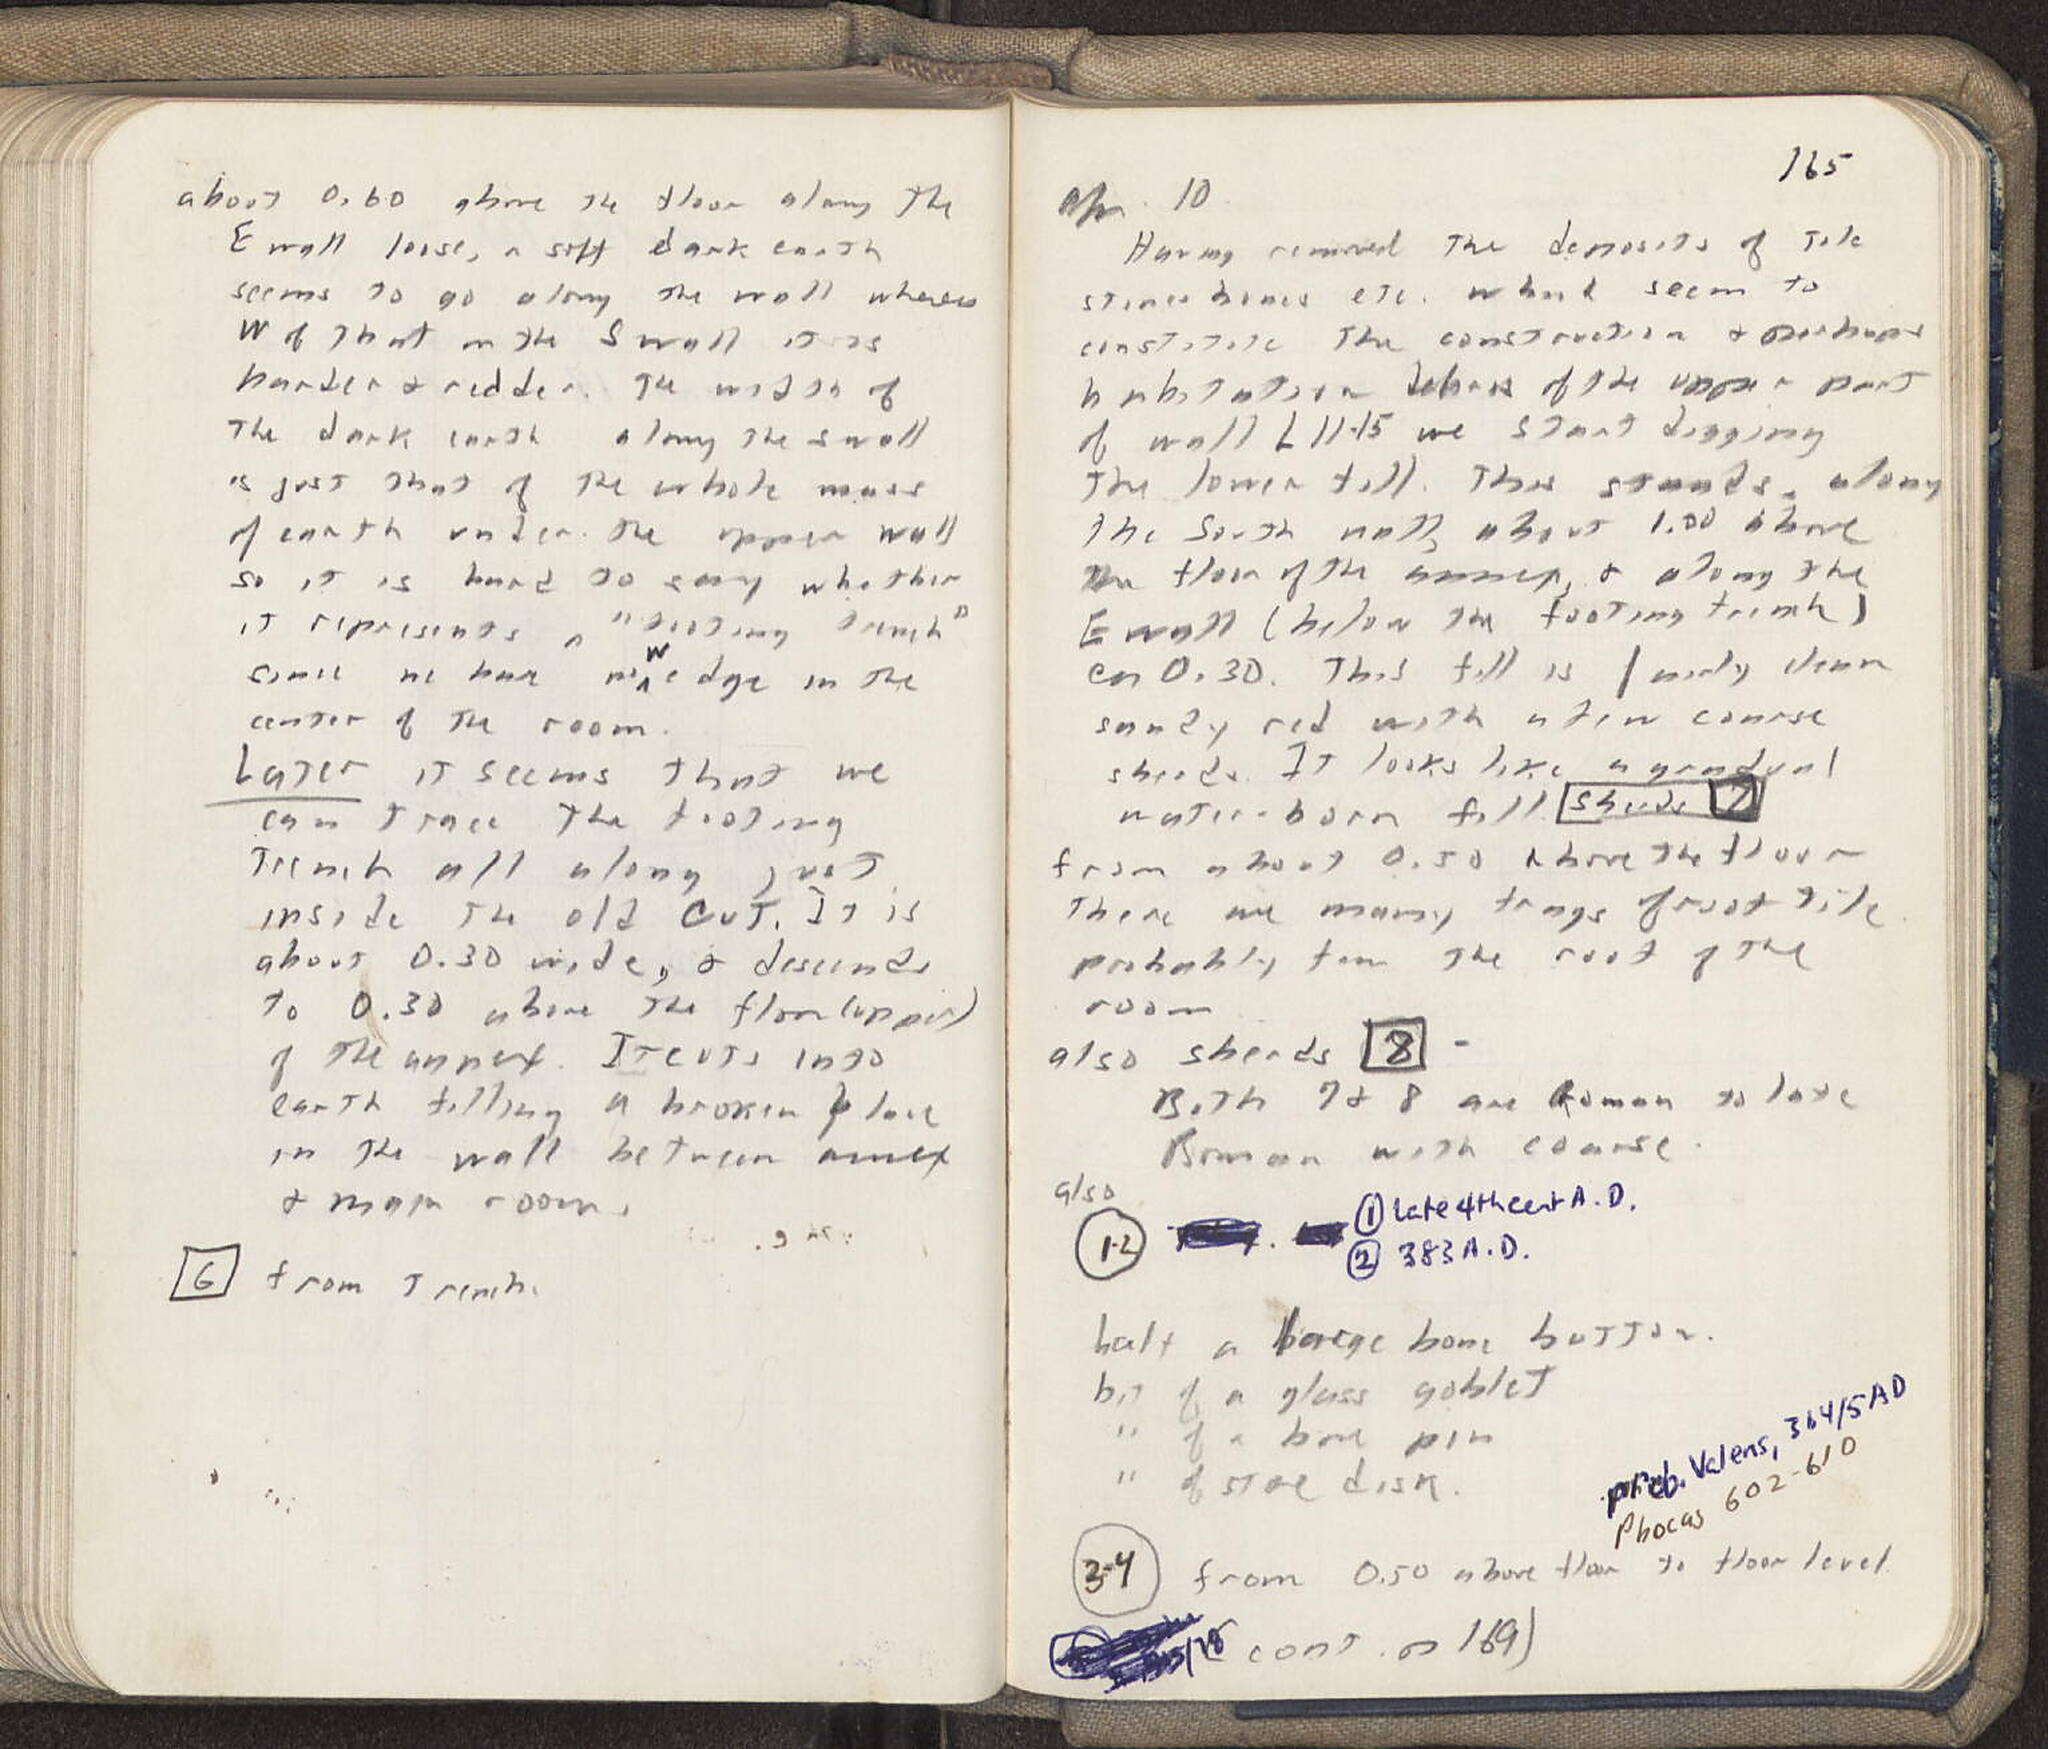 about 0.60 above the floor along the
E wall loose, a soft dark earth
seems to go along the wall whereas
W of that on the S wall it is
harder & redder. The width of
the dark earth along the S wall
is just that of the whole mass
of earth under the upper wall
so it is hard to say whether
it represents a "footing trench"
since we have no W edge in the
center of the room.
Later it seems that we
can trace the footing
trench all along just
inside the old cut. It is
about 0.30 wide, & descends
to 0.30 above the floor (upper)
of the annex. It cuts into
earth filling a broken place
in the wall between annex
& main room.
6 from trench.
165
Apr. 10
Having removed the deposits of tile
stones bones etc. which seem to
constitute the construction & perhaps
habitation debris of the upper part
of wall L 11-15 we start digging
the lower fill. This stands, along
the South wall, about 1.00 above
the floor of the annex, & along the
E wall (below the footing trench)
ca 0.30. This fill is fairly clean
sandy red with a few coarse
sherds. It looks like a gradual
water-born fill. Sherds 7
from about 0.50 above the floor
there are many frags of roof tile
probably from the roof of the
room
also sherds 8 -
Both 7 & 8 are Roman to late
Roman with coarse.
also
1-2 ① Late 4th cent A.D.
② 383 A.D.
half a large bone button.
bit of a glass goblet
" of a bone pin
" of stone disk.
prob. Valens, 364/5 AD
Phocas 602-610
3-4 from 0.50 above floor to floor level
(cont. on 169)